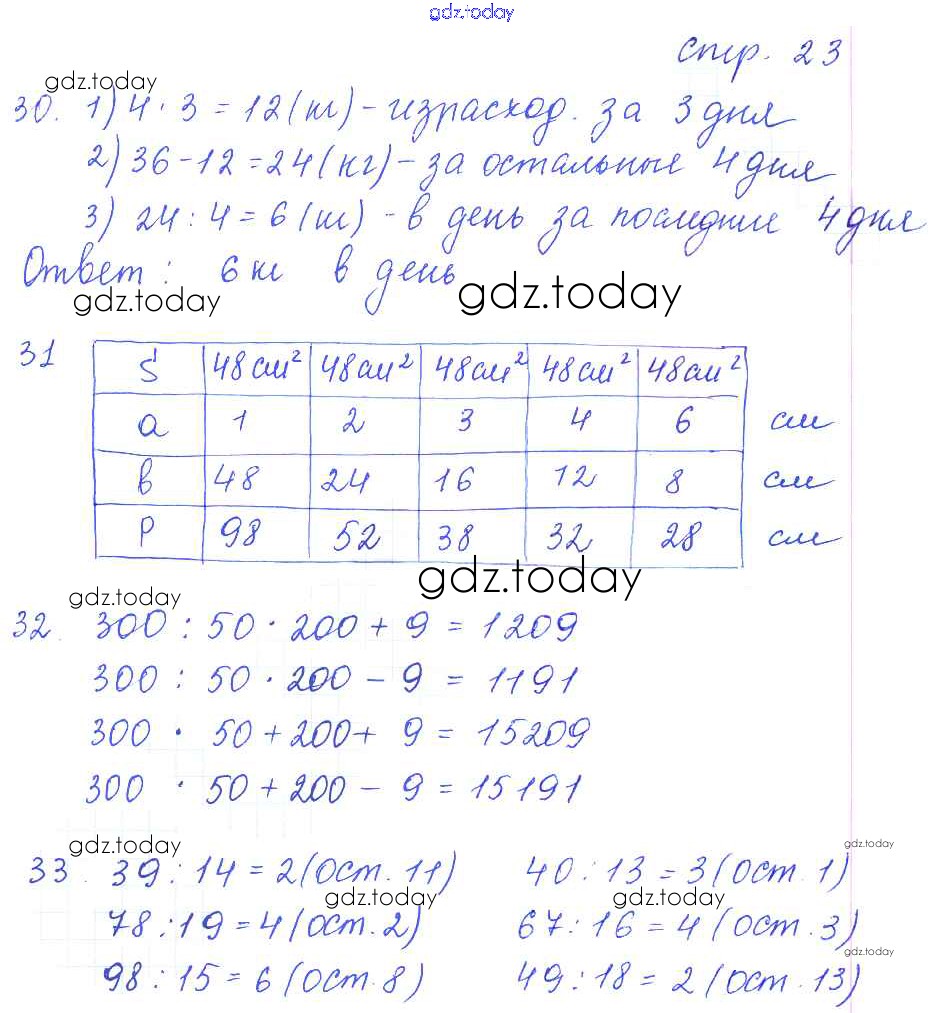 gdz.today
стр. 23
gdz.today
30. 1) 4 · 3 = 12 (кг) - израсход. за 3 дня
2) 36 - 12 = 24 (кг) - за остальные 4 дня
3) 24 : 4 = 6 (кг) - в день за последние 4 дня
Ответ: 6 кг в день
gdz.today gdz.today
31
S 48 см² 48 см² 48 см² 48 см² 48 см²
a 1 2 3 4 6 см
в 48 24 16 12 8 см
P 98 52 38 32 28 см
gdz.today
gdz.today
32. 300 : 50 · 200 + 9 = 1209
300 : 50 · 200 - 9 = 1191
300 · 50 + 200 + 9 = 15209
300 · 50 + 200 - 9 = 15191
gdz.today gdz.today
33. 39 : 14 = 2 (ост. 11) 40 : 13 = 3 (ост. 1)
gdz.today gdz.today
78 : 19 = 4 (ост. 2) 67 : 16 = 4 (ост. 3)
gdz.today
98 : 15 = 6 (ост. 8) 49 : 18 = 2 (ост. 13)